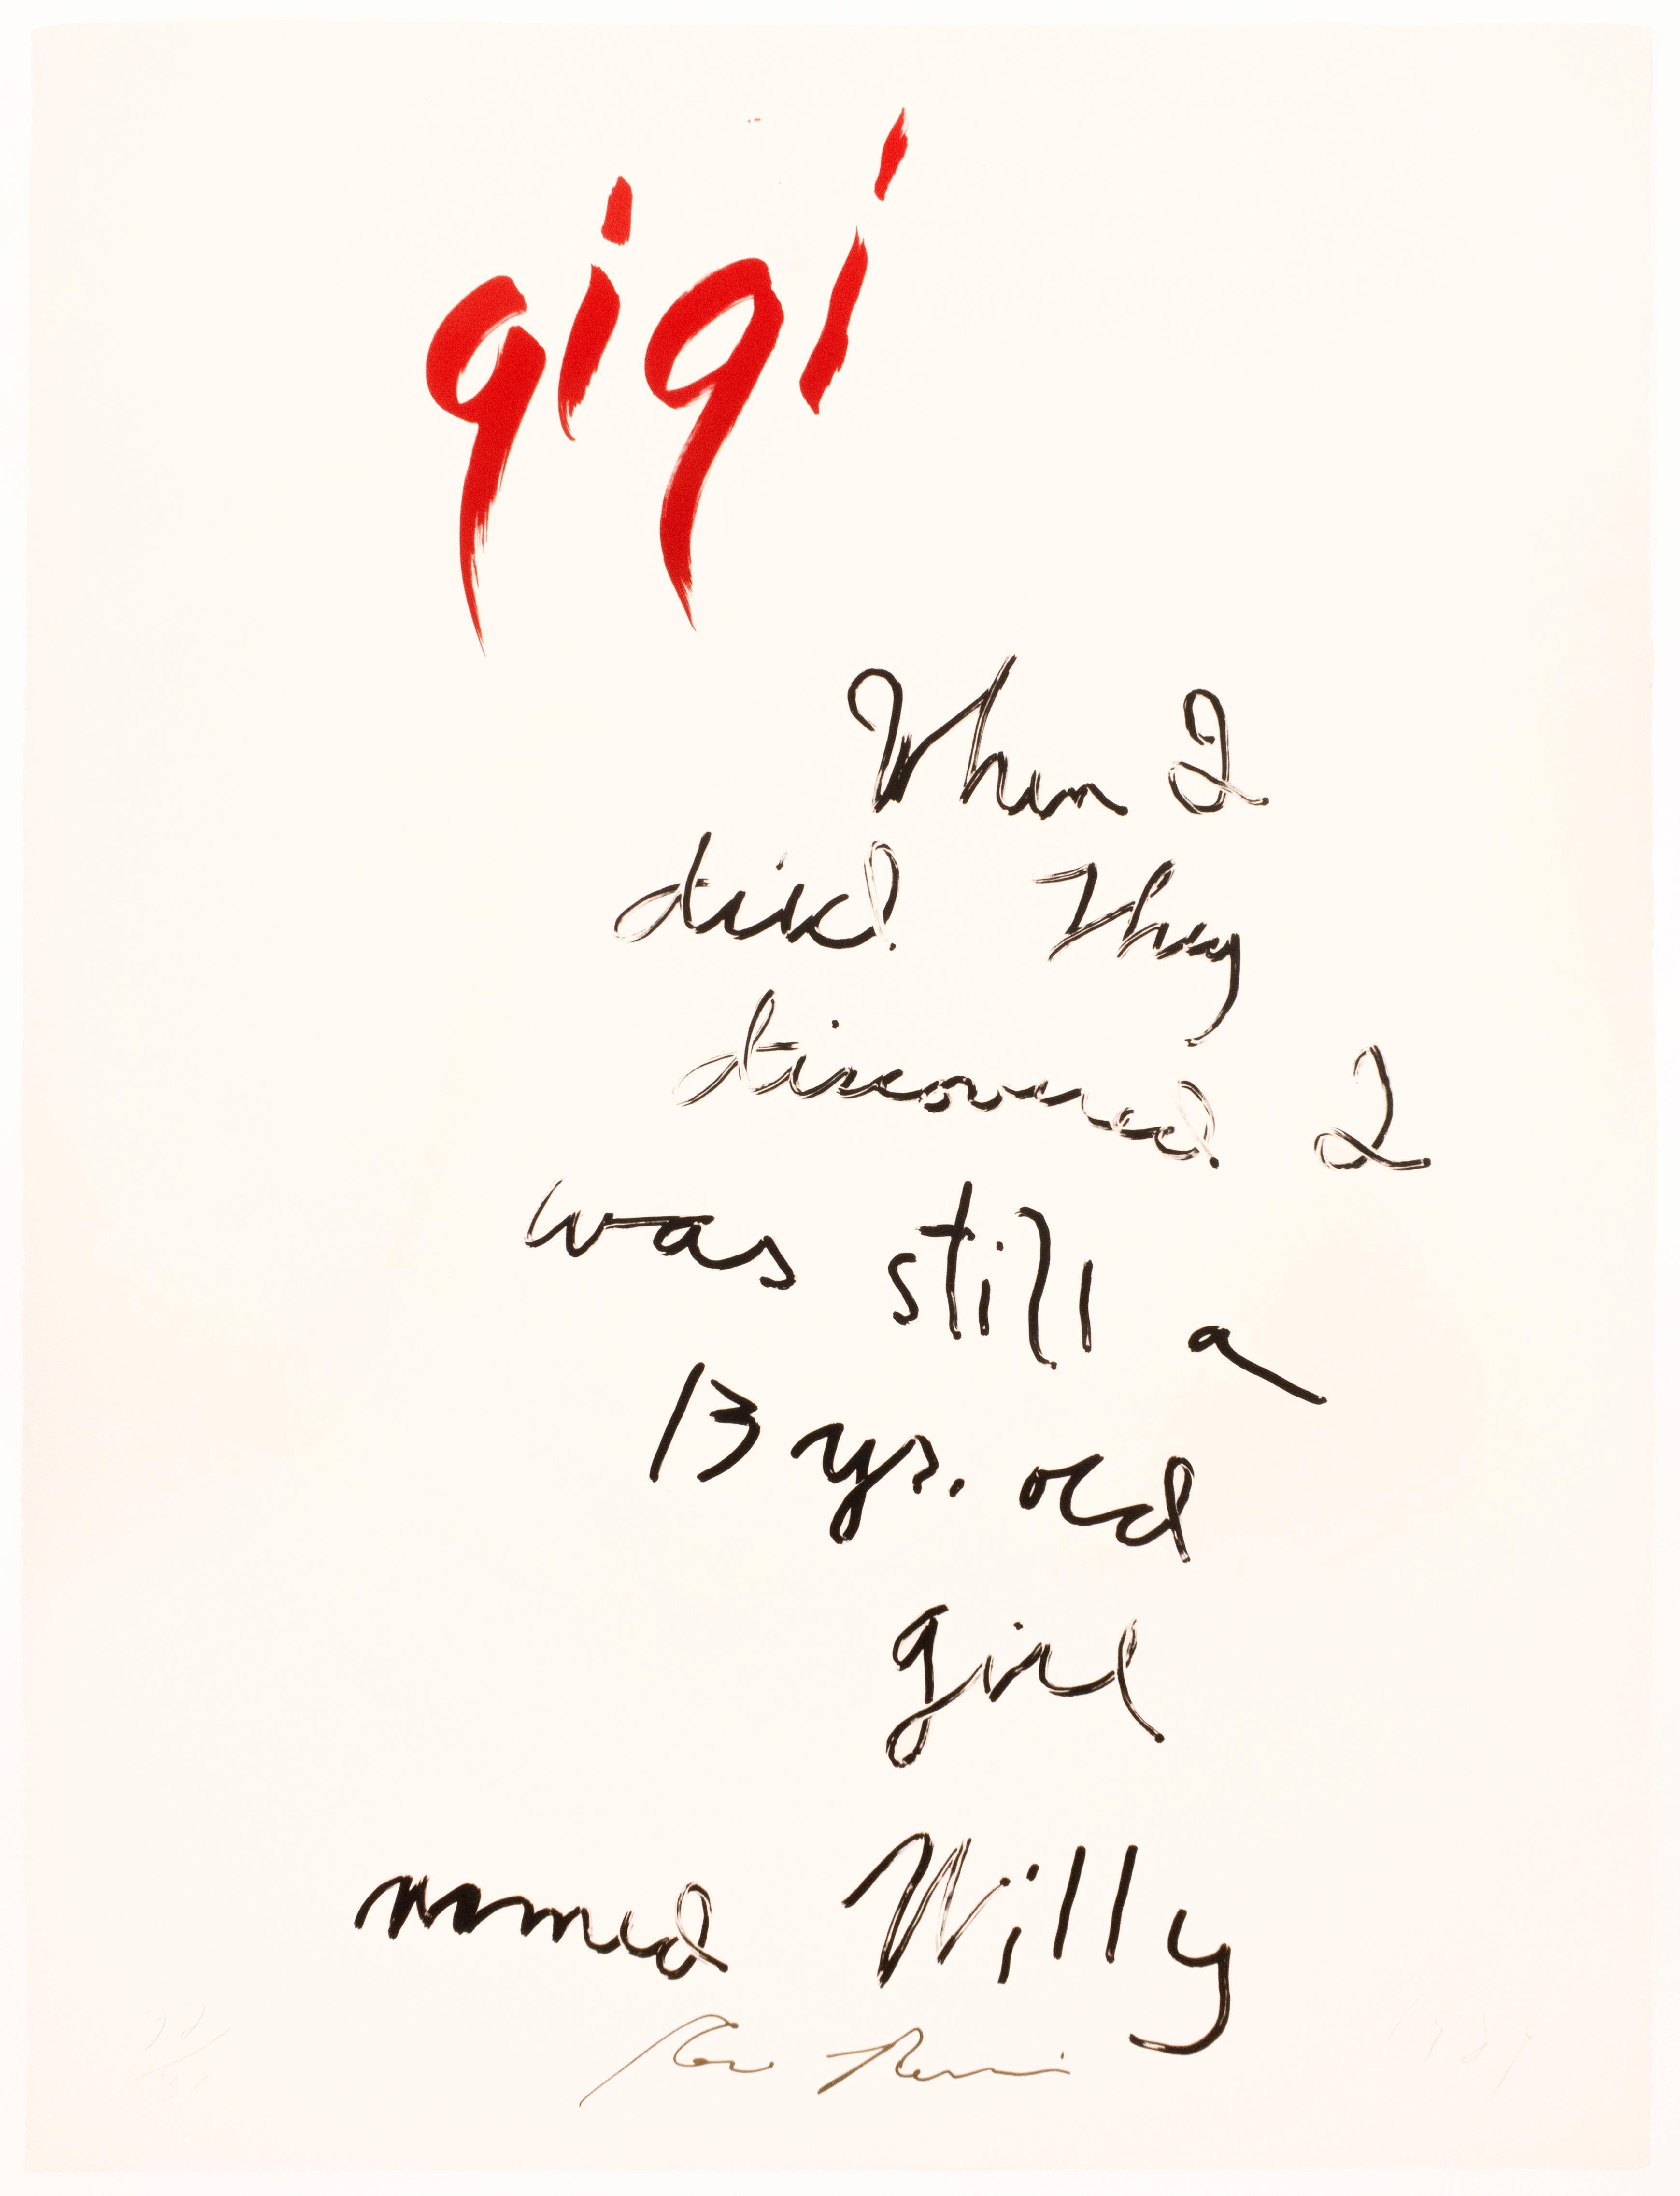 gigi
When I
died They
discovered I
was still a
13 yrs. old
girl
named Willy